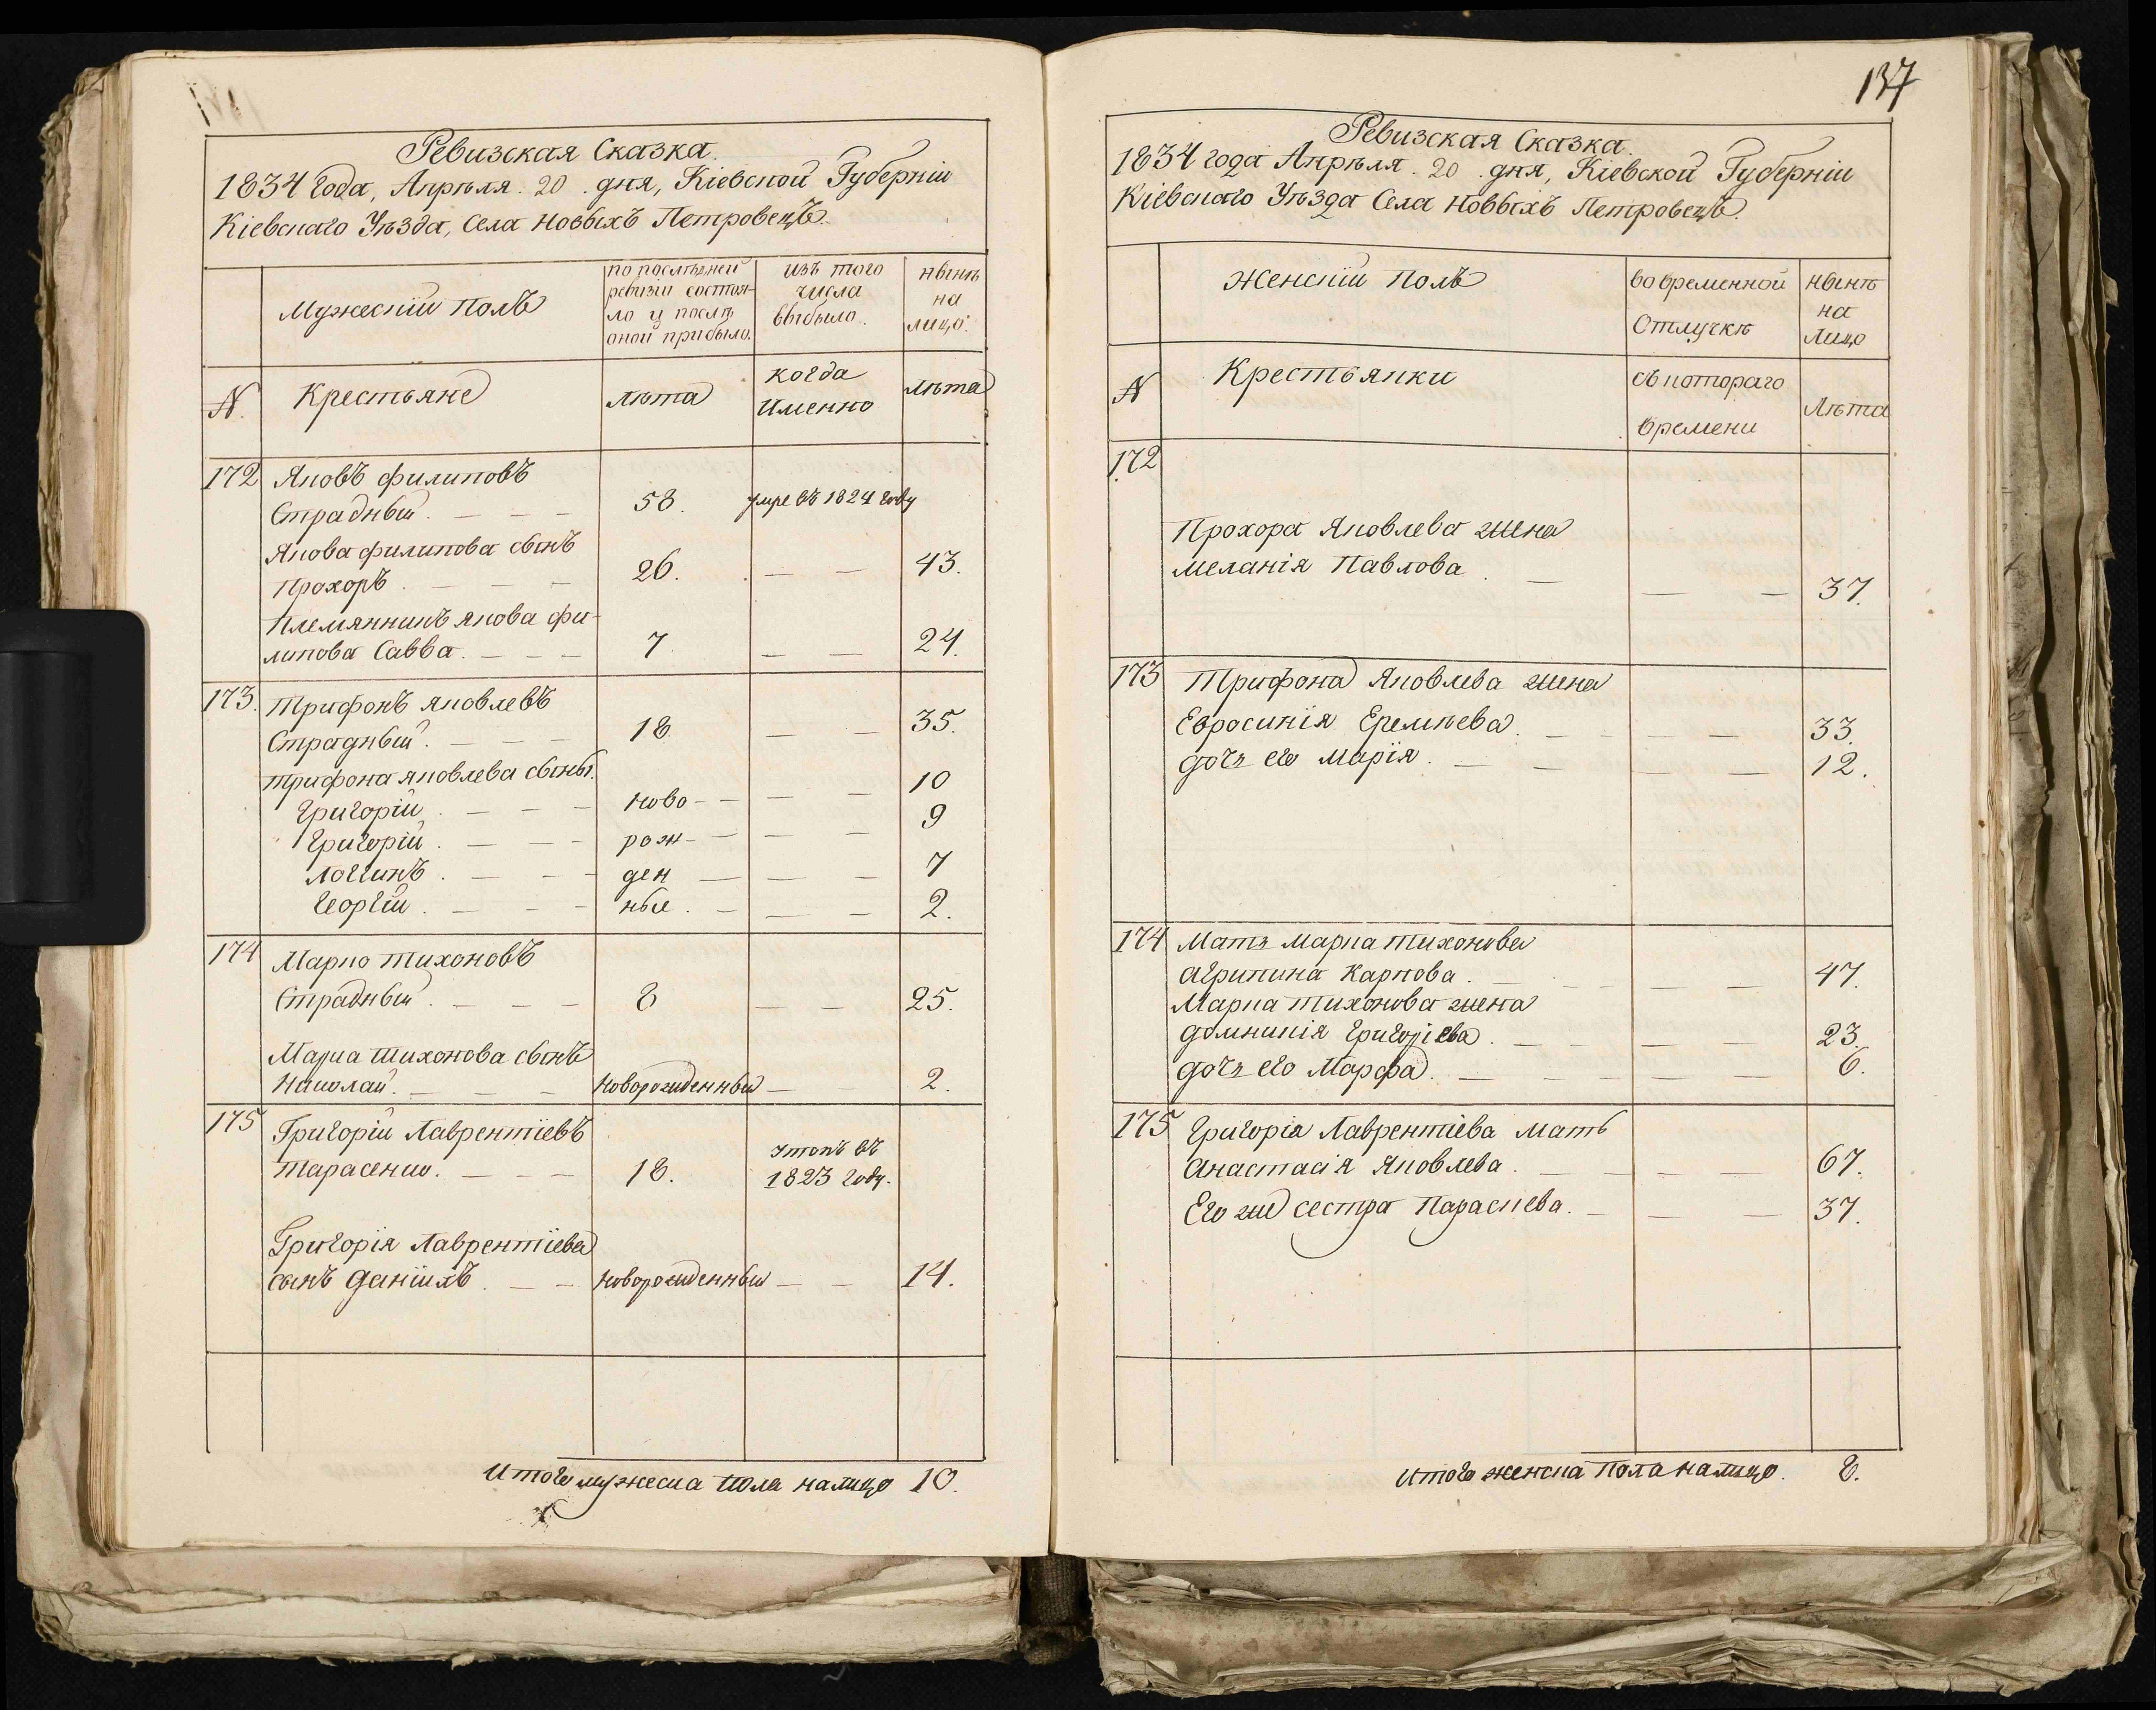 Ревизская Сказка.
1834 Года, Апрѣля. 20. дня, Кіевской Губерніи
Кіевскаго Уѣзда, Села Новыхъ Петровецъ.
Мужескій Полъ
по послѣдней
ревизіи состоя-
ло и послѣ
оной прибыло.
изъ того
числа
выбыло.
нынѣ
на
лицо.
№.
Крестьяне
лѣта
когда
Именно
лѣта
172 Яковъ филиповъ
Страдный. — — — 58. умре въ 1824 году
Якова филипова сынъ
Прохоръ. — — — 26. — — 43.
Племянникъ якова фи-
липова Савва. — — — 7 — — 24.
173. Трифонъ яковлевъ
Страдный. — — — 18 — — 35.
трифона яковлева сыны.
Григорій. — — — ново- — — — 10
Григорій. — — — рож- — — — 9
Логгинъ. — — — ден — — — 7
Георгій. — — — ные. — — — 2.
174 Марко тихоновъ
Страдный. — — — 8 — — 25.
Марка тихонова сынъ
Николай. — — — Новорожденный — — 2.
175 Григорій Лаврентіевъ
тарасенко. — — — 18. утопъ въ
1823 году.
Григорія Лаврентіева
сынъ Даніилъ. — — Новорожденный — — 14.
Итого мужеска пола налицо 10.
137
Ревизская Сказка.
1834 года Апрѣля. 20. дня, Кіевской Губерніи
Кіевскаго Уѣзда Села Новыхъ Петровецъ.
Женскій Полъ
во временной
Отлучкѣ
нынѣ
на
Лицо
№
Крестьянки
съ котораго
времени
Лѣта
172
Прохора Яковлева жена
меланія Павлова. — — — 37.
173 Трифона Яковлева жена
Евросинія Еремѣева. — — — — 33.
дочь его Марія. — — — — 12.
174 Мать марка тихонова
Агрипина Карпова. — — — — 47.
Марка тихонова жена
домникія Григоріева. — — — — 23.
дочь его Марфа. — — — — — 6.
175 Григорія Лаврентіева мать
Анастасія Яковлева. — — — 67.
Его же сестра Параскева. — — — 37.
Итого женска пола налицо. 8.